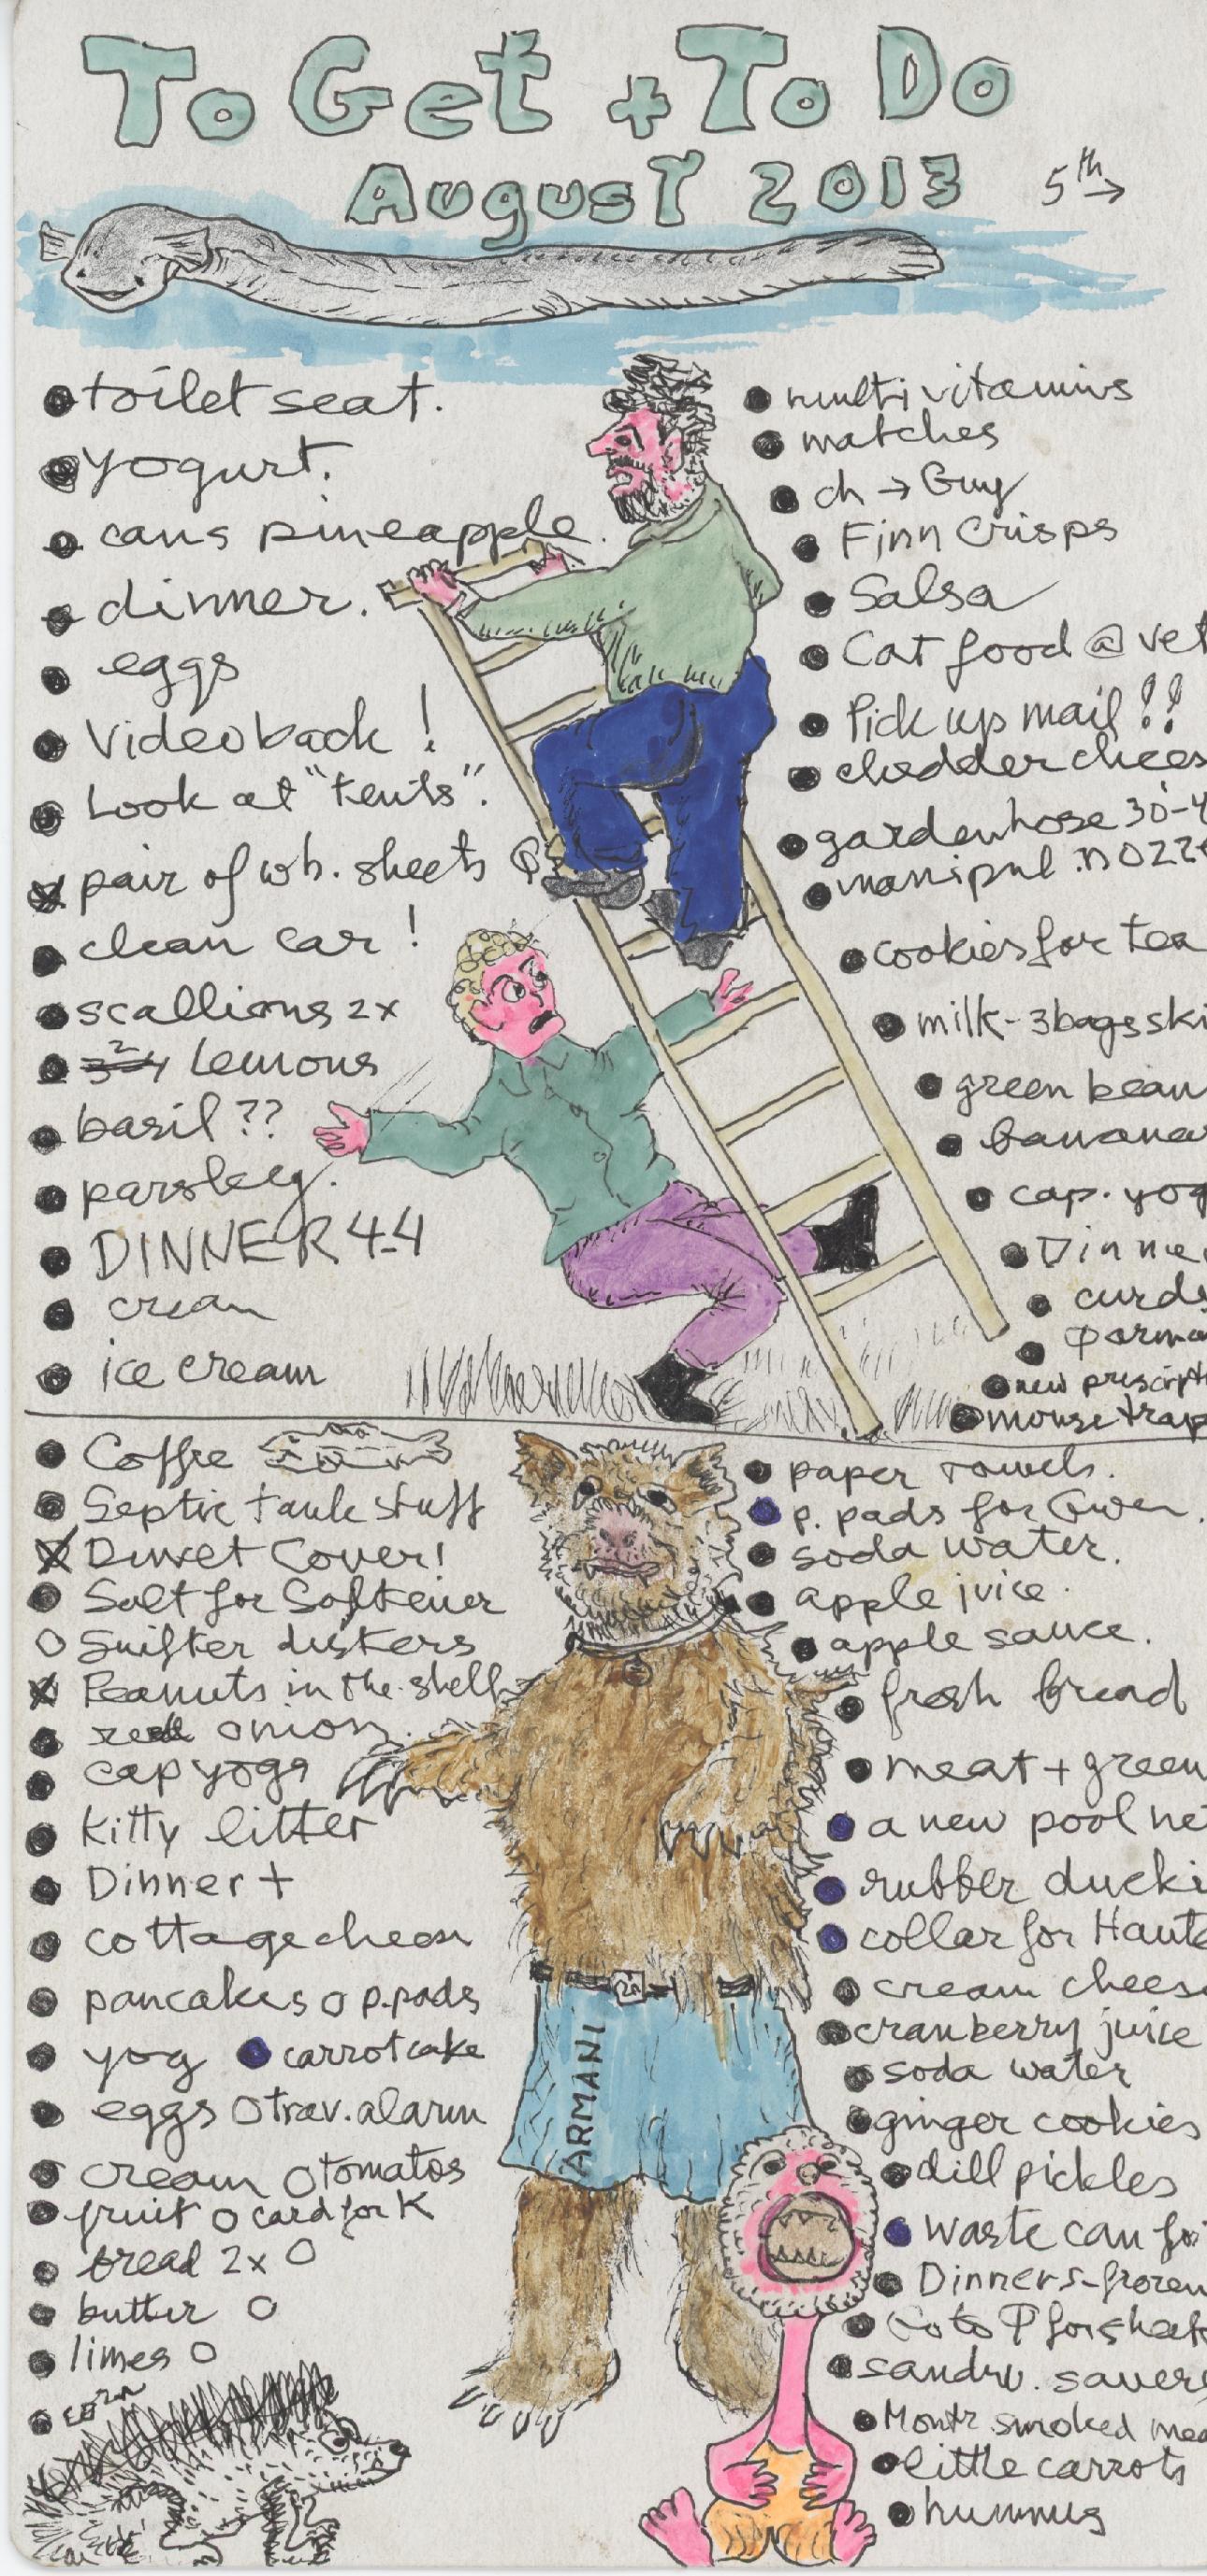 To Get + To Do
August 2013 5th →
toilet seat.
yogurt.
cans pineapple.
dinner.
eggs
Video back !
Look at "tents".
pair of wh. sheets
clean car !
scallions 2x
lemons
basil ??
parsley.
DINNER 4-4
cream
ice cream
multi vitamins
matches
ch → Guy
Finn Crisps
Salsa
Cat food @ vet
Pick up mail !!
chedder chees
garden hose 30-4
manipul. nozz
cookies for tea
milk - 3 bags ski
green bean
banana
cap. yog
Dinne
curds
parma
new prescript
mouse trap
Coffee
Septic tank stuff
Duvet Cover!
Salt for Softener
Swifter dusters
Peanuts in the shell
red onion.
cap yogs
kitty litter
Dinner +
cottage cheese
pancakes o p.pads
yog carrot cake
eggs o trav. alarm
cream o tomatos
fruit o card for K
bread 2x o
butter o
limes o
paper towels.
p. pads for Gwen.
soda water.
apple juice.
apple sauce.
fresh bread
meat + green
a new pool ne
rubber ducki
collar for Haute
cream cheese
cranberry juice
soda water
ginger cookies
dill pickles
Waste can for
Dinners-frozen
Go to for sheets
sandw. savers
Montr smoked mea
little carrots
hummus
ARMANI